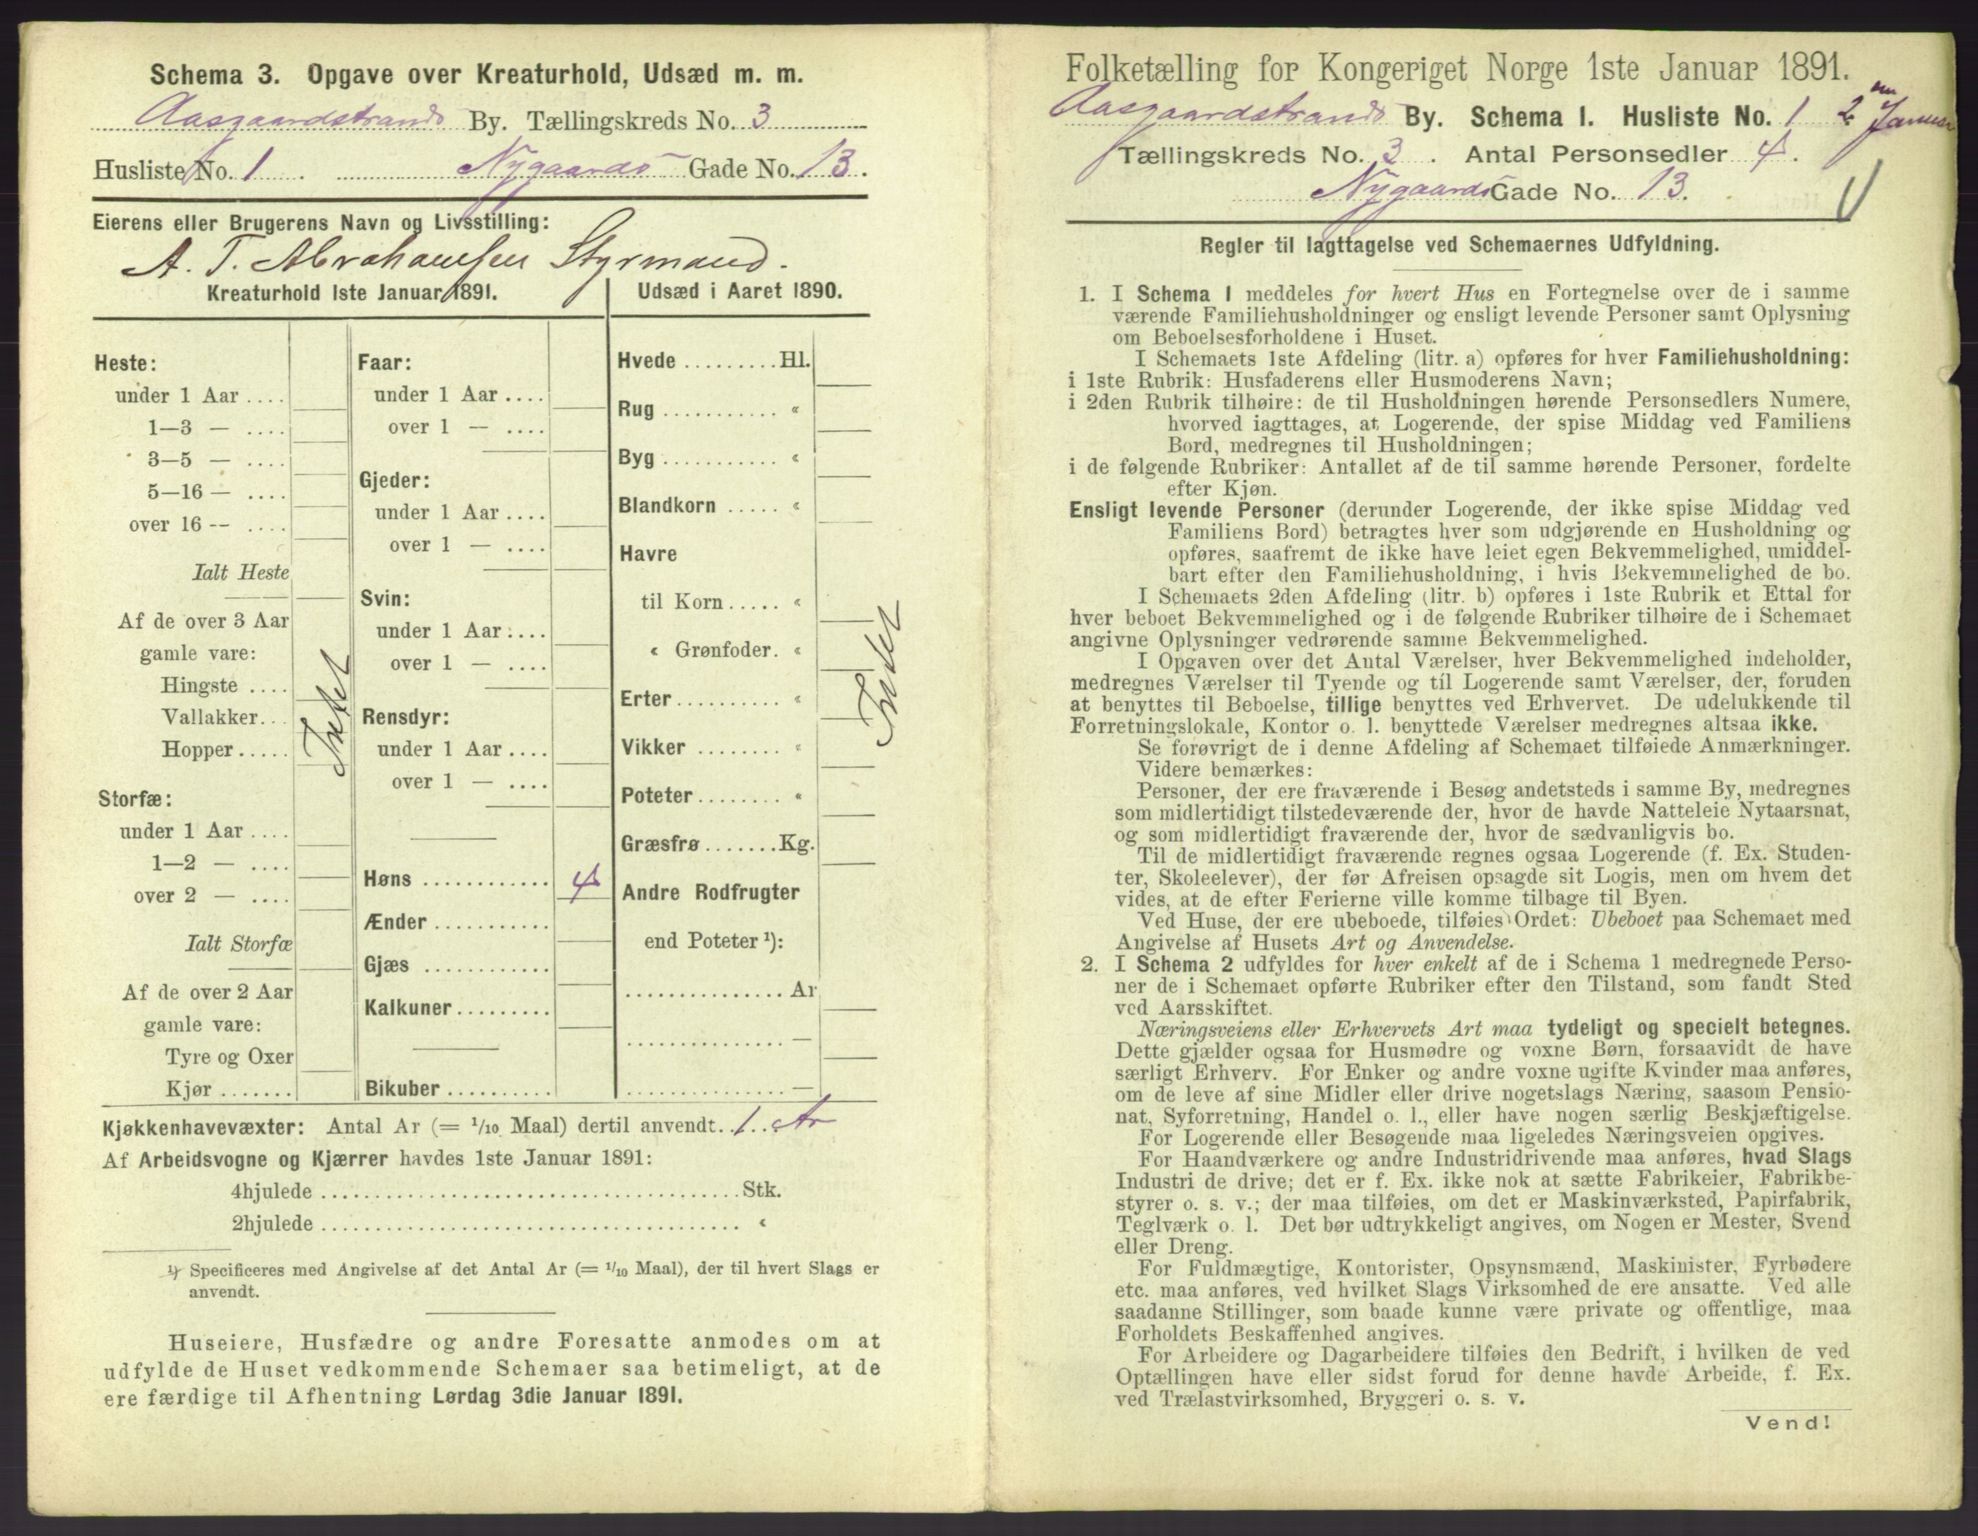 Schema 3. Opgave over Kreaturhold, Udsæd m. m.
Aasgaardstrands By. Tællingskreds No. 3
Husliste No. 1. Nygaards Gade No. 13.
Eierens eller Brugerens Navn og Livsstilling:
A. T. Abrahamsen Styrmand.
Kreaturhold 1ste Januar 1891.
Heste:
under 1 Aar ....
1—3 — ....
3—5 — ....
5—16 — ....
over 16 -- ....
Ialt Heste
Af de over 3 Aar
gamle vare:
Hingste ....
Vallakker...
Hopper.....
Intet
Storfæ:
under 1 Aar ....
1—2 — ....
over 2 — ....
Ialt Storfæ
Af de over 2 Aar
gamle vare:
Tyre og Oxer
Kjør .......
Faar:
under 1 Aar ....
over 1 — ....
Gjeder:
under 1 Aar ....
over 1 — ....
Svin:
under 1 Aar ....
over 1 — ....
Rensdyr:
under 1 Aar ....
over 1 — ....
Høns ............ 4
Ænder ...........
Gjæs ............
Kalkuner.........
Bikuber..........
Udsæd i Aaret 1890.
Hvede .........Hl.
Rug ........... «
Byg ........... «
Blandkorn ..... «
Havre
til Korn..... «
« Grønfoder. «
Erter.......... «
Vikker ........ «
Poteter........ «
Græsfrø.......Kg.
Andre Rodfrugter
end Poteter ¹):
...............Ar
............... —
............... —
Intet
Kjøkkenhavevæxter: Antal Ar (= 1/10 Maal) dertil anvendt. 1 Ar
Af Arbeidsvogne og Kjærrer havdes 1ste Januar 1891:
4hjulede ........................................Stk.
2hjulede ........................................ «
¹) Specificeres med Angivelse af det Antal Ar (= 1/10 Maal), der til hvert Slags er
anvendt.
Huseiere, Husfædre og andre Foresatte anmodes om at
udfylde de Huset vedkommende Schemaer saa betimeligt, at de
ere færdige til Afhentning Lørdag 3die Januar 1891.
Folketælling for Kongeriget Norge 1ste Januar 1891.
Aasgaardstrands By. Schema I. Husliste No. 1 2 Januar
Tællingskreds No. 3. Antal Personsedler 4.
Nygaards Gade No. 13.
Regler til Iagttagelse ved Schemaernes Udfyldning.
1. I Schema I meddeles for hvert Hus en Fortegnelse over de i samme
værende Familiehusholdninger og ensligt levende Personer samt Oplysning
om Beboelsesforholdene i Huset.
I Schemaets 1ste Afdeling (litr. a) opføres for hver Familiehusholdning:
i 1ste Rubrik: Husfaderens eller Husmoderens Navn;
i 2den Rubrik tilhøire: de til Husholdningen hørende Personsedlers Numere,
hvorved iagttages, at Logerende, der spise Middag ved Familiens
Bord, medregnes til Husholdningen;
i de følgende Rubriker: Antallet af de til samme hørende Personer, fordelte
efter Kjøn.
Ensligt levende Personer (derunder Logerende, der ikke spise Middag ved
Familiens Bord) betragtes hver som udgjørende en Husholdning og
opføres, saafremt de ikke have leiet egen Bekvemmelighed, umiddel-
bart efter den Familiehusholdning, i hvis Bekvemmelighed de bo.
I Schemaets 2den Afdeling (litr. b) opføres i 1ste Rubrik et Ettal for
hver beboet Bekvemmelighed og i de følgende Rubriker tilhøire de i Schemaet
angivne Oplysninger vedrørende samme Bekvemmelighed.
I Opgaven over det Antal Værelser, hver Bekvemmelighed indeholder,
medregnes Værelser til Tyende og til Logerende samt Værelser, der, foruden
at benyttes til Beboelse, tillige benyttes ved Erhvervet. De udelukkende til
Forretningslokale, Kontor o. l. benyttede Værelser medregnes altsaa ikke.
Se forøvrigt de i denne Afdeling af Schemaet tilføiede Anmærkninger.
Videre bemærkes:
Personer, der ere fraværende i Besøg andetsteds i samme By, medregnes
som midlertidigt tilstedeværende der, hvor de havde Natteleie Nytaarsnat,
og som midlertidigt fraværende der, hvor de sædvanligvis bo.
Til de midlertidigt fraværende regnes ogsaa Logerende (f. Ex. Studen-
ter, Skoleelever), der før Afreisen opsagde sit Logis, men om hvem det
vides, at de efter Ferierne ville komme tilbage til Byen.
Ved Huse, der ere ubeboede, tilføies Ordet: Ubeboet paa Schemaet med
Angivelse af Husets Art og Anvendelse.
2. I Schema 2 udfyldes for hver enkelt af de i Schema 1 medregnede Perso-
ner de i Schemaet opførte Rubriker efter den Tilstand, som fandt Sted
ved Aarsskiftet.
Næringsveiens eller Erhvervets Art maa tydeligt og specielt betegnes.
Dette gjælder ogsaa for Husmødre og voxne Børn, forsaavidt de have
særligt Erhverv. For Enker og andre voxne ugifte Kvinder maa anføres,
om de leve af sine Midler eller drive nogetslags Næring, saasom Pensio-
nat, Syforretning, Handel o. l., eller have nogen særlig Beskjæftigelse.
For Logerende eller Besøgende maa ligeledes Næringsveien opgives.
For Haandværkere og andre Industridrivende maa anføres, hvad Slags
Industri de drive; det er f. Ex. ikke nok at sætte Fabrikeier, Fabrikbe-
styrer o. s. v.; der maa tilføies, om det er Maskinværksted, Papirfabrik,
Teglværk o. l. Det bør udtrykkeligt angives, om Nogen er Mester, Svend
eller Dreng.
For Fuldmægtige, Kontorister, Opsynsmænd, Maskinister, Fyrbødere
etc. maa anføres, ved hvilket Slags Virksomhed de ere ansatte. Ved alle
saadanne Stillinger, som baade kunne være private og offentlige, maa
Forholdets Beskaffenhed angives.
For Arbeidere og Dagarbeidere tilføies den Bedrift, i hvilken de ved
Optællingen have eller sidst forud for denne havde Arbeide, f. Ex.
ved Trælastvirksomhed, Bryggeri o. s. v.
Vend!